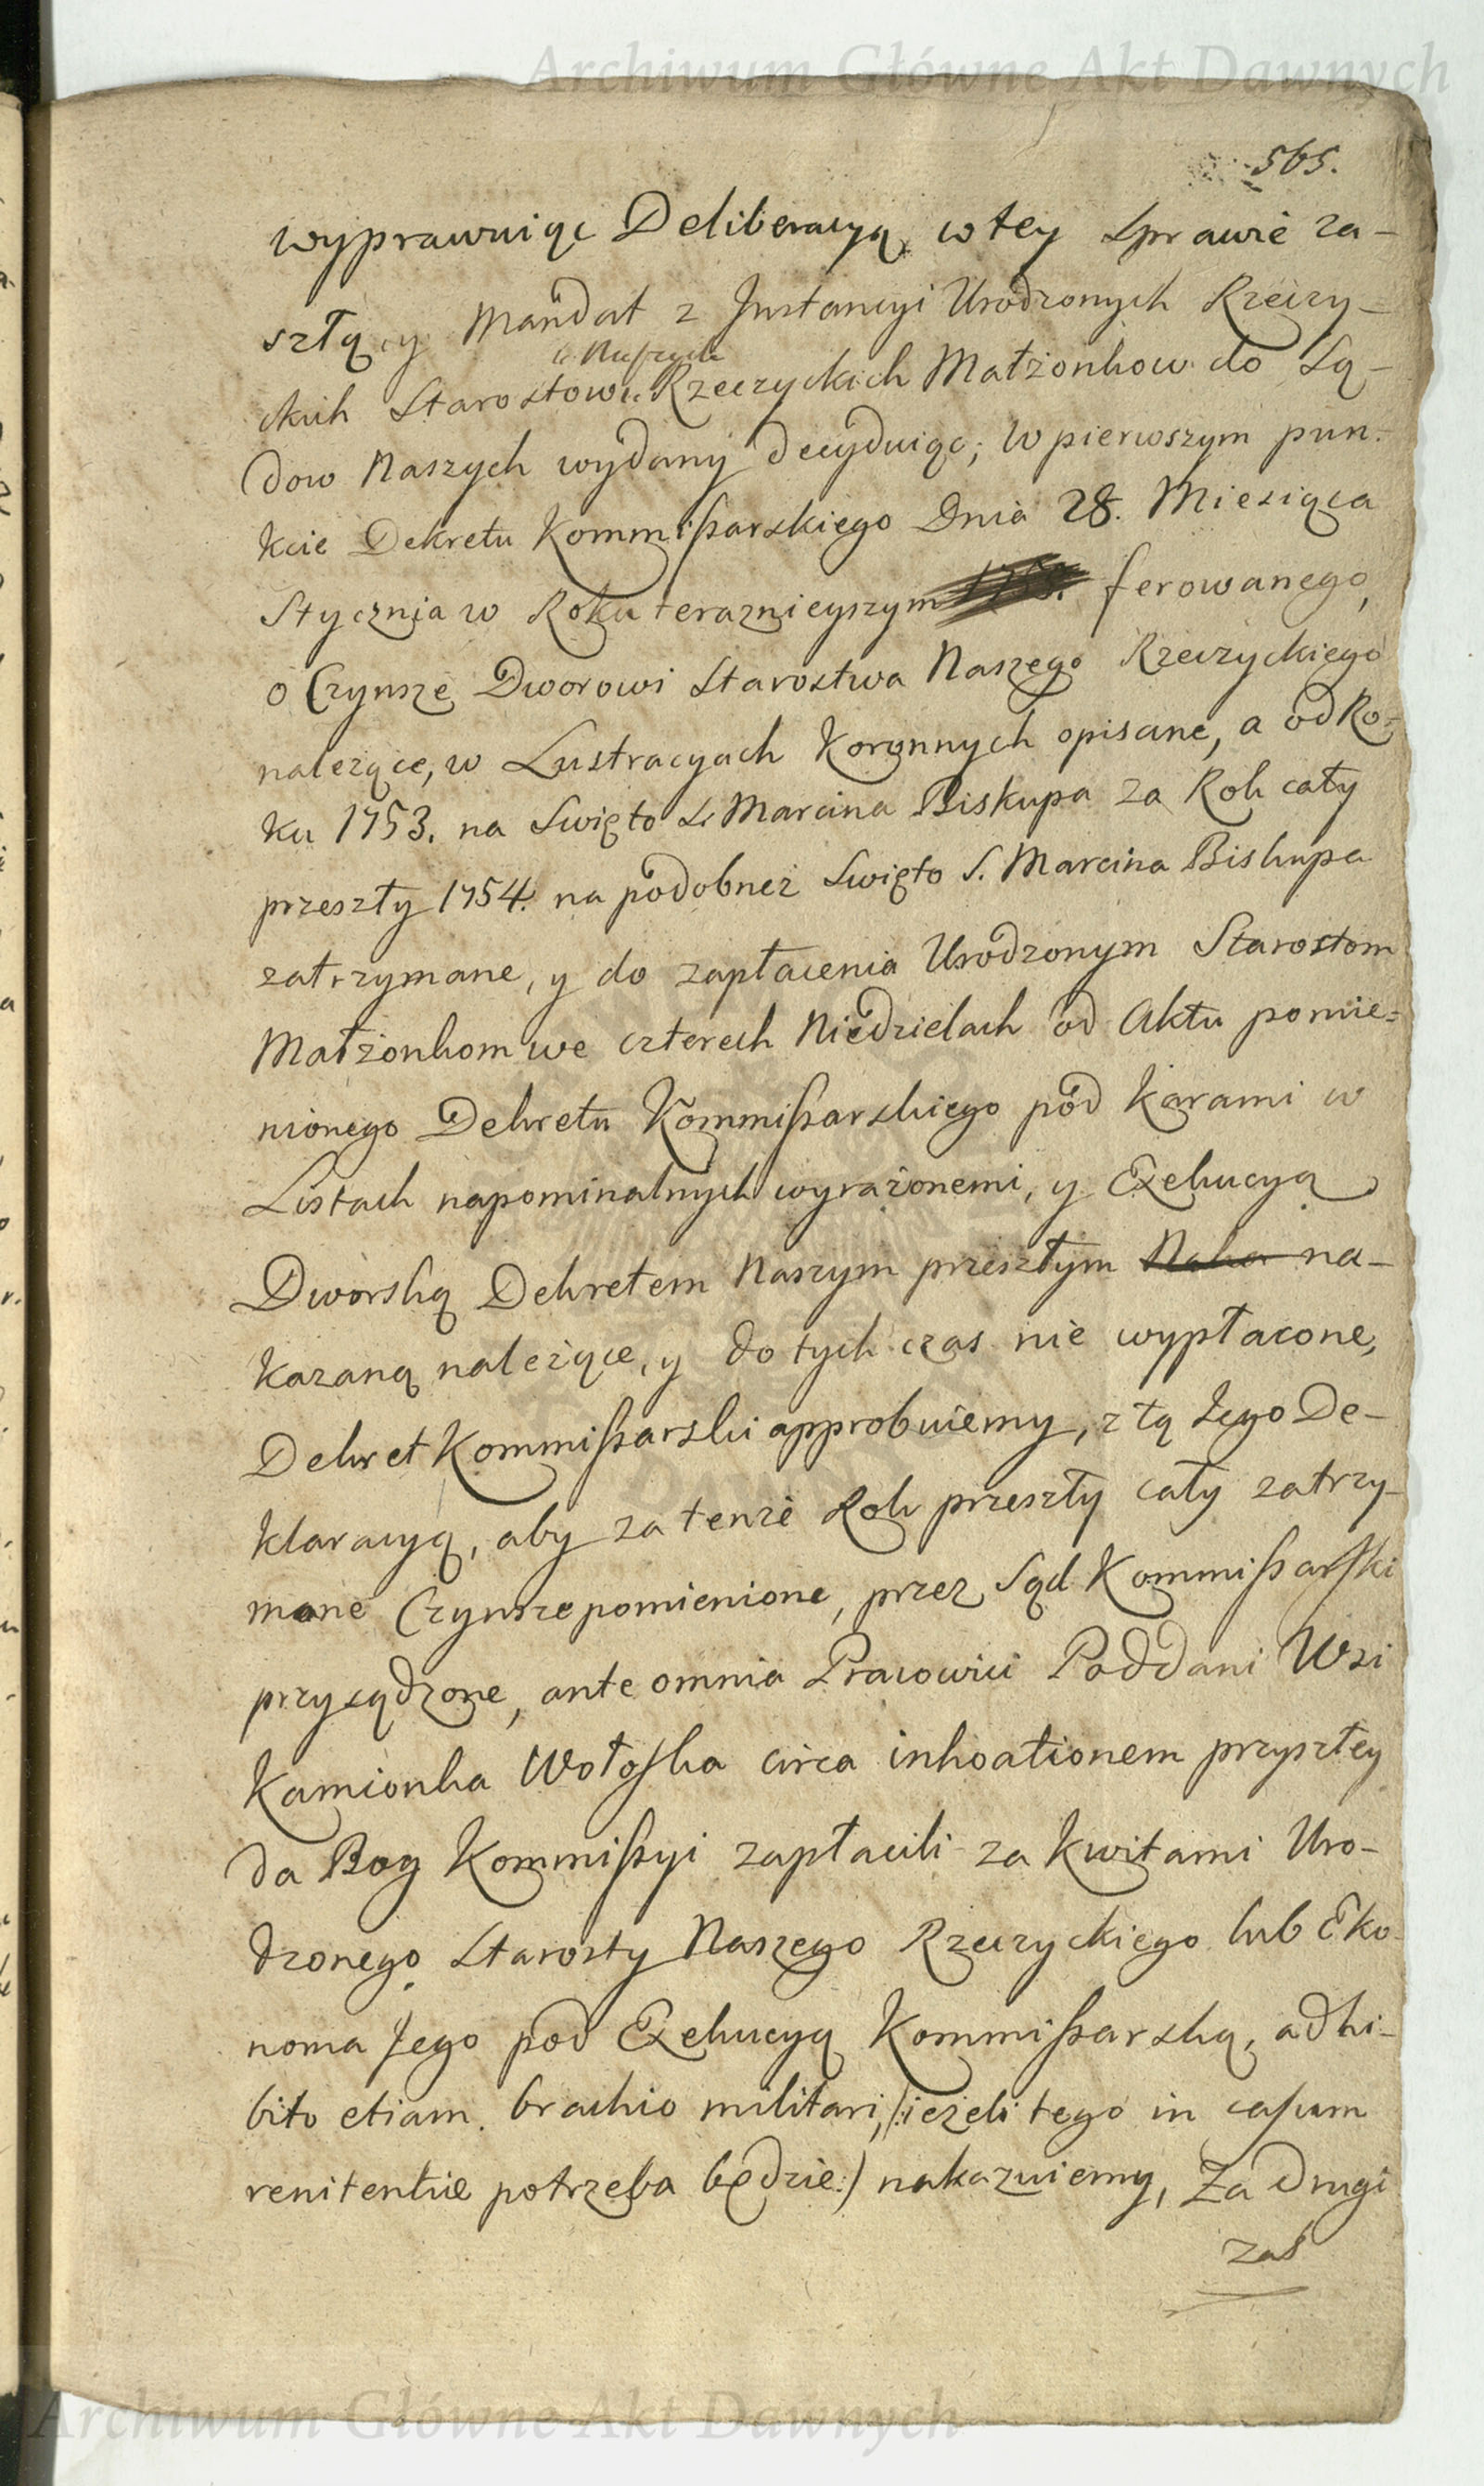 Archiwum Główne Akt Dawnych
565.
wyprawuiąc Deliberacyą w tey Sprawie za-
szłą, y Mandat z Jnstancyi Urodzonych Rzeczy-
Naszych
ckich Starostow Rzeczyckich Małżonkow do Są-
dow Naszych wydany decyduiąc; W pierwszym pun-
kcie Dekretu Kommißarskiego Dnia 28. Miesiąca
Stycznia w Roku teraznieyszym ferowanego,
o Czynsze Dworowi Starostwa Naszego Rzeczyckiego
nalezące, w Lustracyach Koronnych opisane, a od Ro-
ku 1753. na Swięto S. Marcina Biskupa za Rok cały
przeszły 1754. na podobneż Swięto S. Marcina Biskupa
zatrzymane, y do zapłacenia Urodzonym Starostom
Małżonkom we czterech Niedzielach od Aktu pomie-
nionego Dekretu Kommißarskiego pod karami w
Listach napominalnych wyrażonemi, y Exekucyą
Dworską Dekretem Naszym przeszłym na-
kazaną należące, y do tych czas nie wypłacone,
Dekret Kommißarski approbuiemy, z tą Jego De-
klaracyą, aby za tenże Rok przeszły cały zatrzy-
mane Czynsze pomienione, przez Sąd Kommißarski
przysądzone, ante omnia Pracowici Poddani Wsi
Kamionka Wołoska circa inhoationem przyszłey
da Bog Kommißyi zapłacili za kwitami Uro-
dzonego Starosty Naszego Rzeczyckiego lub Eko-
noma Jego pod Exekucyą Kommißarską, adhi-
bito etiam brachio militari, /:ieżeli tego in casum
renitentiæ potrzeba będzie:/ nakazuiemy, Za drugi
zaś
Archiwum Główne Akt Dawnych